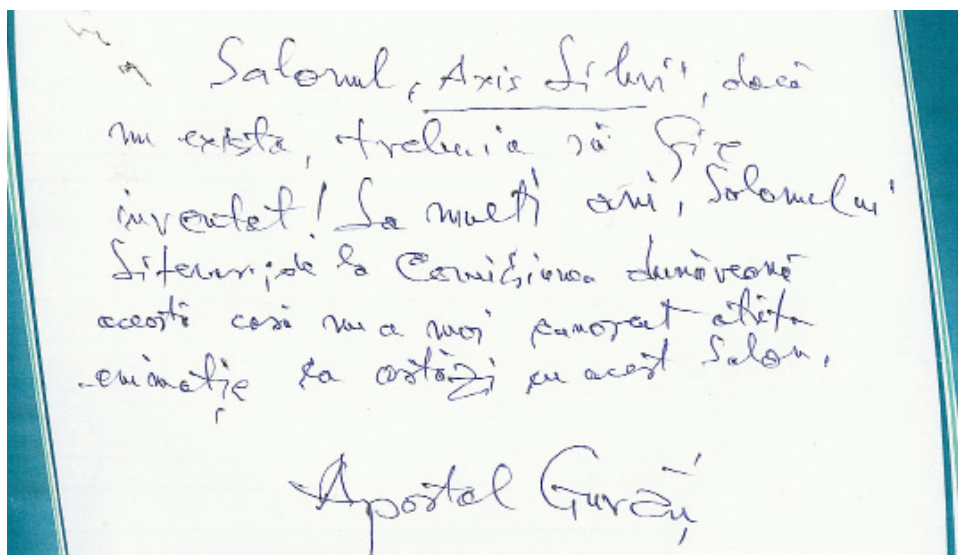 Salonul „Axis Libri”, dacă
nu exista, trebuia să fie
inventat! La mulți ani, Salonului
Literar; de la Comisiunea dunăreană
această casă nu a mai cunoscut atâta
animație ca astăzi cu acest Salon.
Apostol Gurău